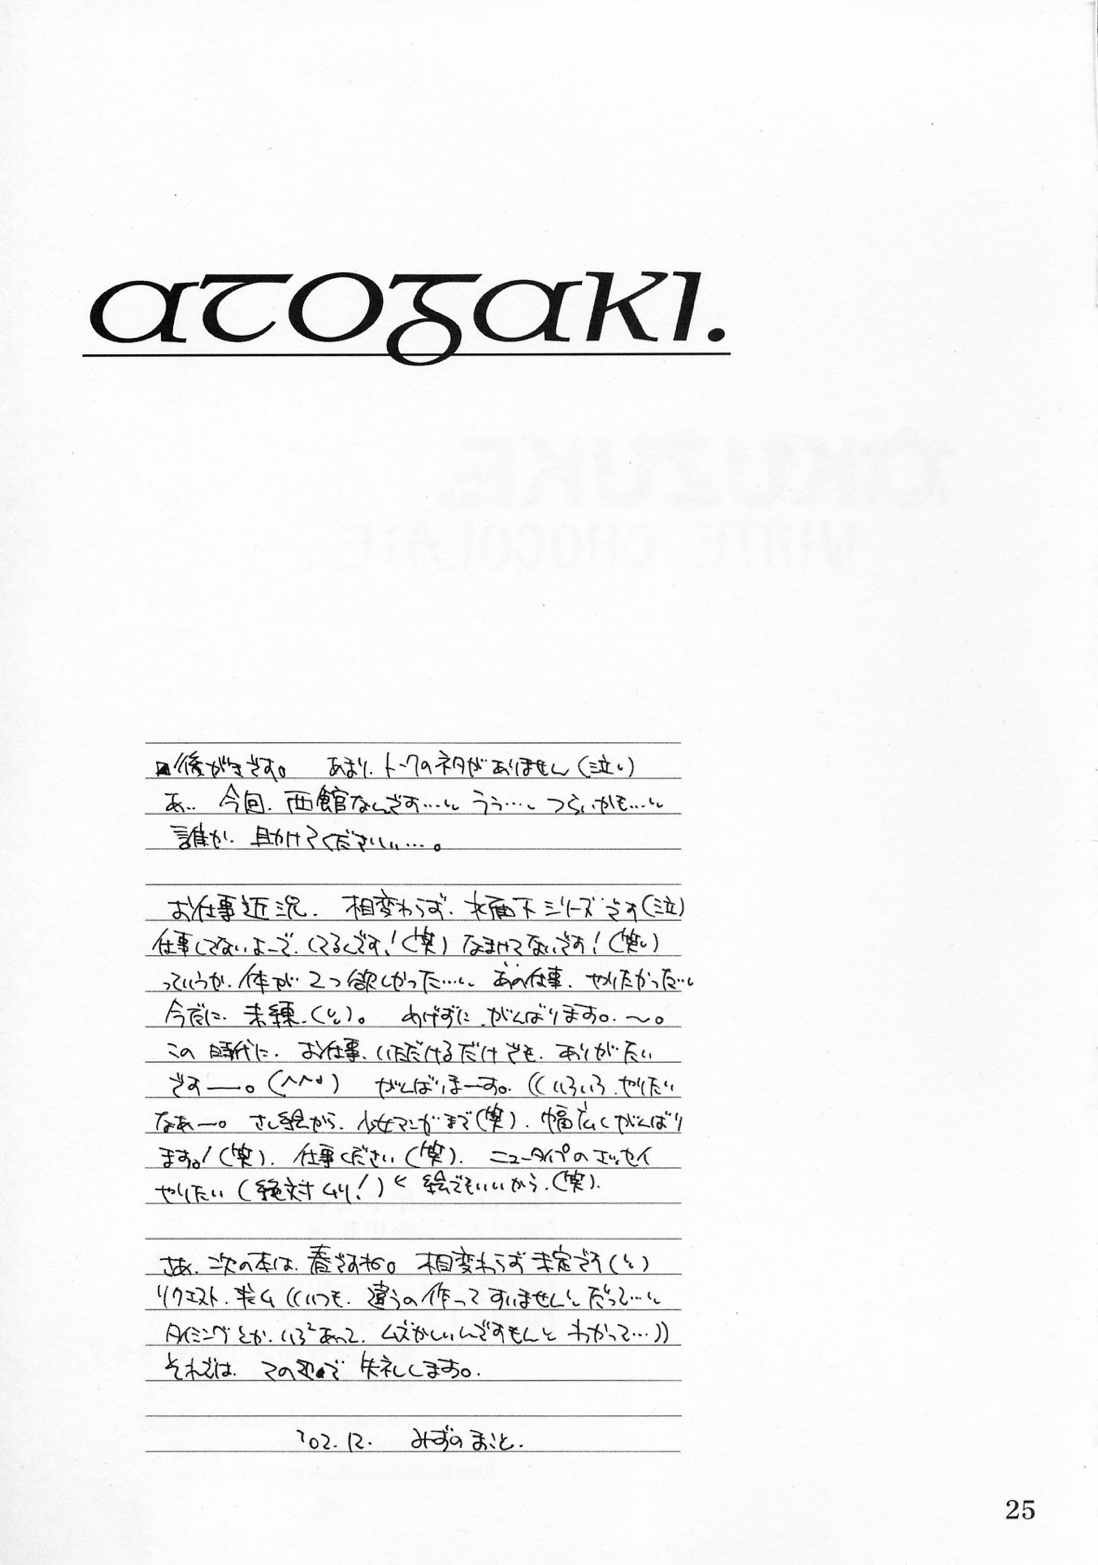 atogaki.
後がきです。 あまり、トークのネタがありません(泣い)
あ.. 今回、西館なんです……い うぅ…、つらいかも…い
誰か、助けてくださいぃ…。
お仕事近況、相変わらず、水面下シリーズです(泣)
仕事してないよーで、してるんです!(笑) なまけてないです!(笑い)
っていうか、体が2つ欲しかった…い あの仕事、やりたかった…い
今だに、未練、(と)。 めげずに、がんばります。〜。
この時代に、お仕事、いただけるだけでも、ありがたい
ですー。(^^) がんばりまーす。((いろいろ、やりたい
なぁー。さし絵から、少女マンガまで(笑)、幅広くがんばり
ます。!(笑)、仕事ください(笑)、ニュータイプのエッセイ
やりたい(絶対ムリ!)く 絵でもいいから、(笑)、
さあ、次の本は、春ですね。相変わらず未定です(と)
リクエスト、求ム((いつも、違うの作って すいませんと だって…い
タイミングとか、いろ²あって、ムズかしいんですもんと わかって…))
それでは、この辺で 失礼します。
'02.12. みずの まこと.
25